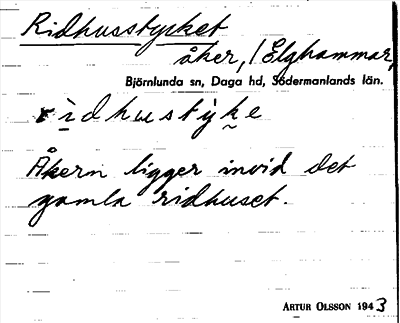 Ridhusstycket
åker, /Elghammar,
Björnlunda sn, Daga hd, Södermanlands län.
ridhustyke
Åkern ligger invid det
gamla ridhuset.
ARTUR OLSSON 1943